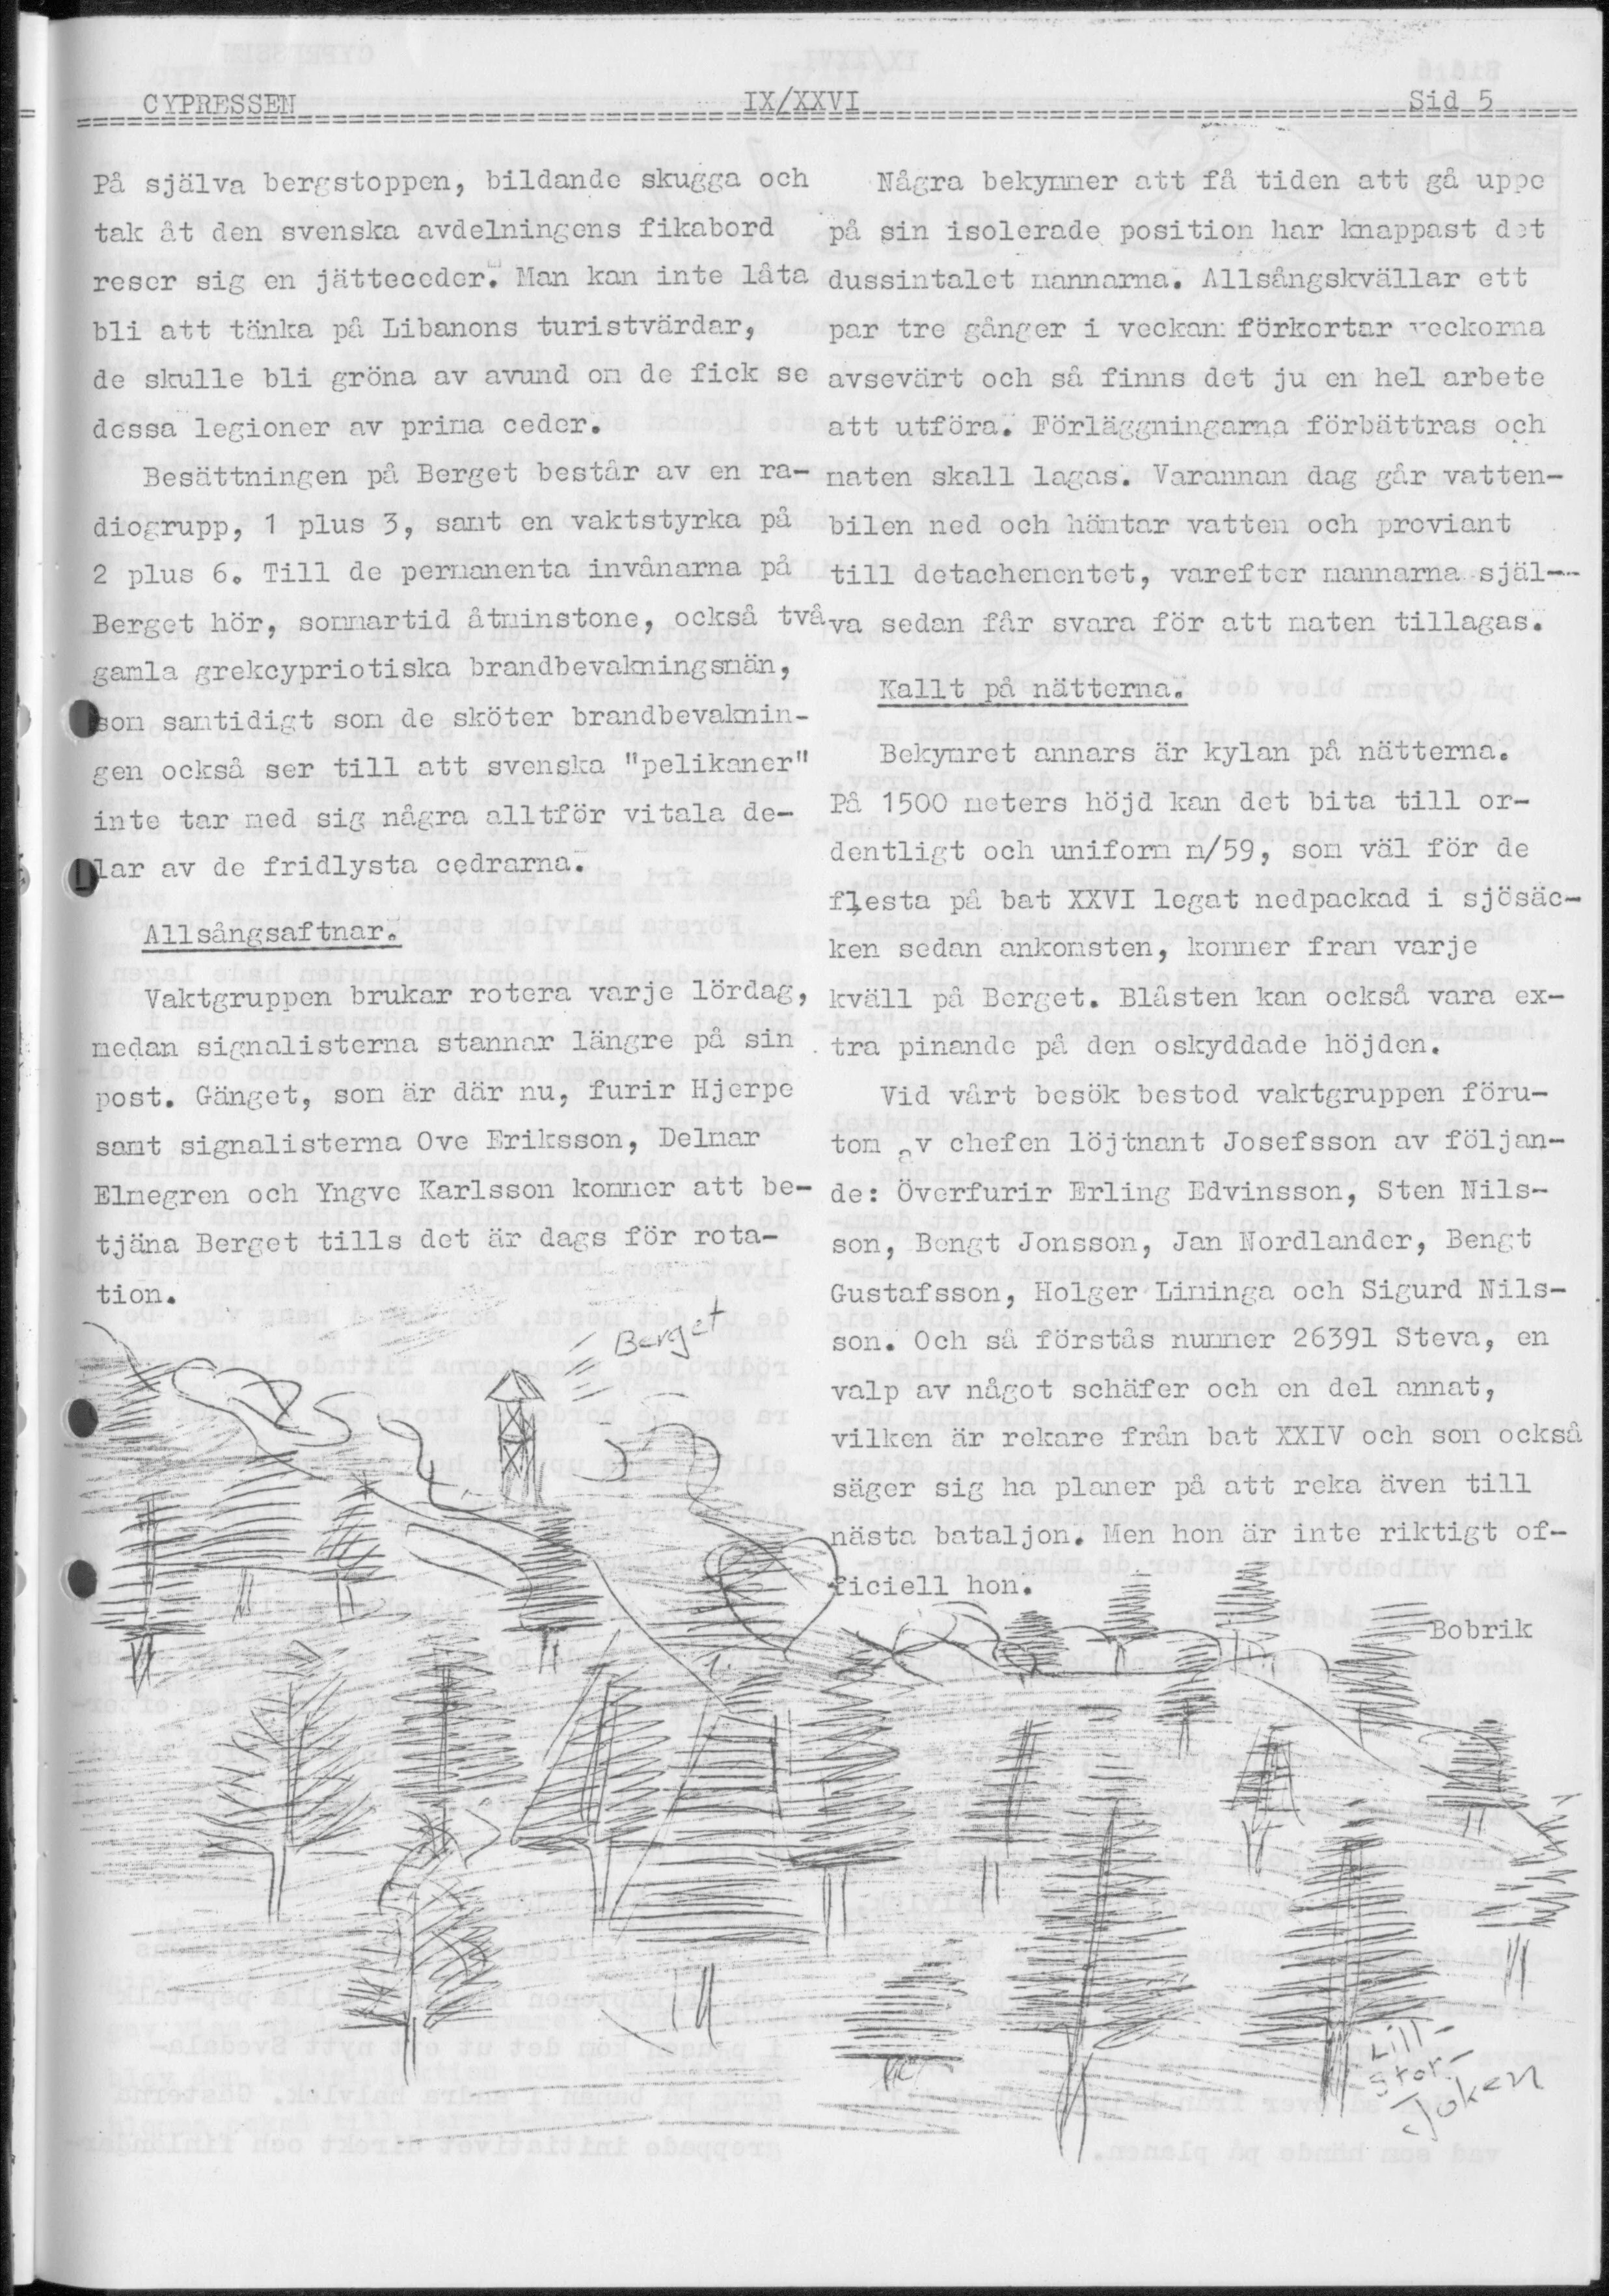 CYPRESSEN IX/XXVI Sid 5
På själva bergstoppen, bildande skugga och
tak åt den svenska avdelningens fikabord
reser sig en jätteceder. Man kan inte låta
bli att tänka på Libanons turistvärdar,
de skulle bli gröna av avund om de fick se
dessa legioner av prima ceder.
Besättningen på Berget består av en ra-
diogrupp, 1 plus 3, samt en vaktstyrka på
2 plus 6. Till de permanenta invånarna på
Berget hör, sommartid åtminstone, också två
gamla grekcypriotiska brandbevakningsmän,
som samtidigt som de sköter brandbevaknin-
gen också ser till att svenska "pelikaner"
inte tar med sig några alltför vitala de-
lar av de fridlysta cedrarna.
Allsångsaftnar.
Vaktgruppen brukar rotera varje lördag,
medan signalisterna stannar längre på sin
post. Gänget, som är där nu, furir Hjerpe
samt signalisterna Ove Eriksson, Delmar
Elmegren och Yngve Karlsson kommer att be-
tjäna Berget tills det är dags för rota-
tion.
Berget
Några bekymmer att få tiden att gå uppe
på sin isolerade position har knappast det
dussintalet mannarna. Allsångskvällar ett
par tre gånger i veckan förkortar veckorna
avsevärt och så finns det ju en hel arbete
att utföra. Förläggningarna förbättras och
maten skall lagas. Varannan dag går vatten-
bilen ned och hämtar vatten och proviant
till detachementet, varefter mannarna själ-
va sedan får svara för att maten tillagas.
Kallt på nätterna.
Bekymret annars är kylan på nätterna.
På 1500 meters höjd kan det bita till or-
dentligt och uniform m/59, som väl för de
flesta på bat XXVI legat nedpackad i sjösäc-
ken sedan ankomsten, kommer fram varje
kväll på Berget. Blåsten kan också vara ex-
tra pinande på den oskyddade höjden.
Vid vårt besök bestod vaktgruppen föru-
tom av chefen löjtnant Josefsson av följan-
de: Överfurir Erling Edvinsson, Sten Nils-
son, Bengt Jonsson, Jan Nordlander, Bengt
Gustafsson, Holger Liminga och Sigurd Nils-
son. Och så förstås nummer 26391 Steva, en
valp av något schäfer och en del annat,
vilken är rekare från bat XXIV och som också
säger sig ha planer på att reka även till
nästa bataljon. Men hon är inte riktigt of-
ficiell hon.
Bobrik
Lill-
Stor-
Joken